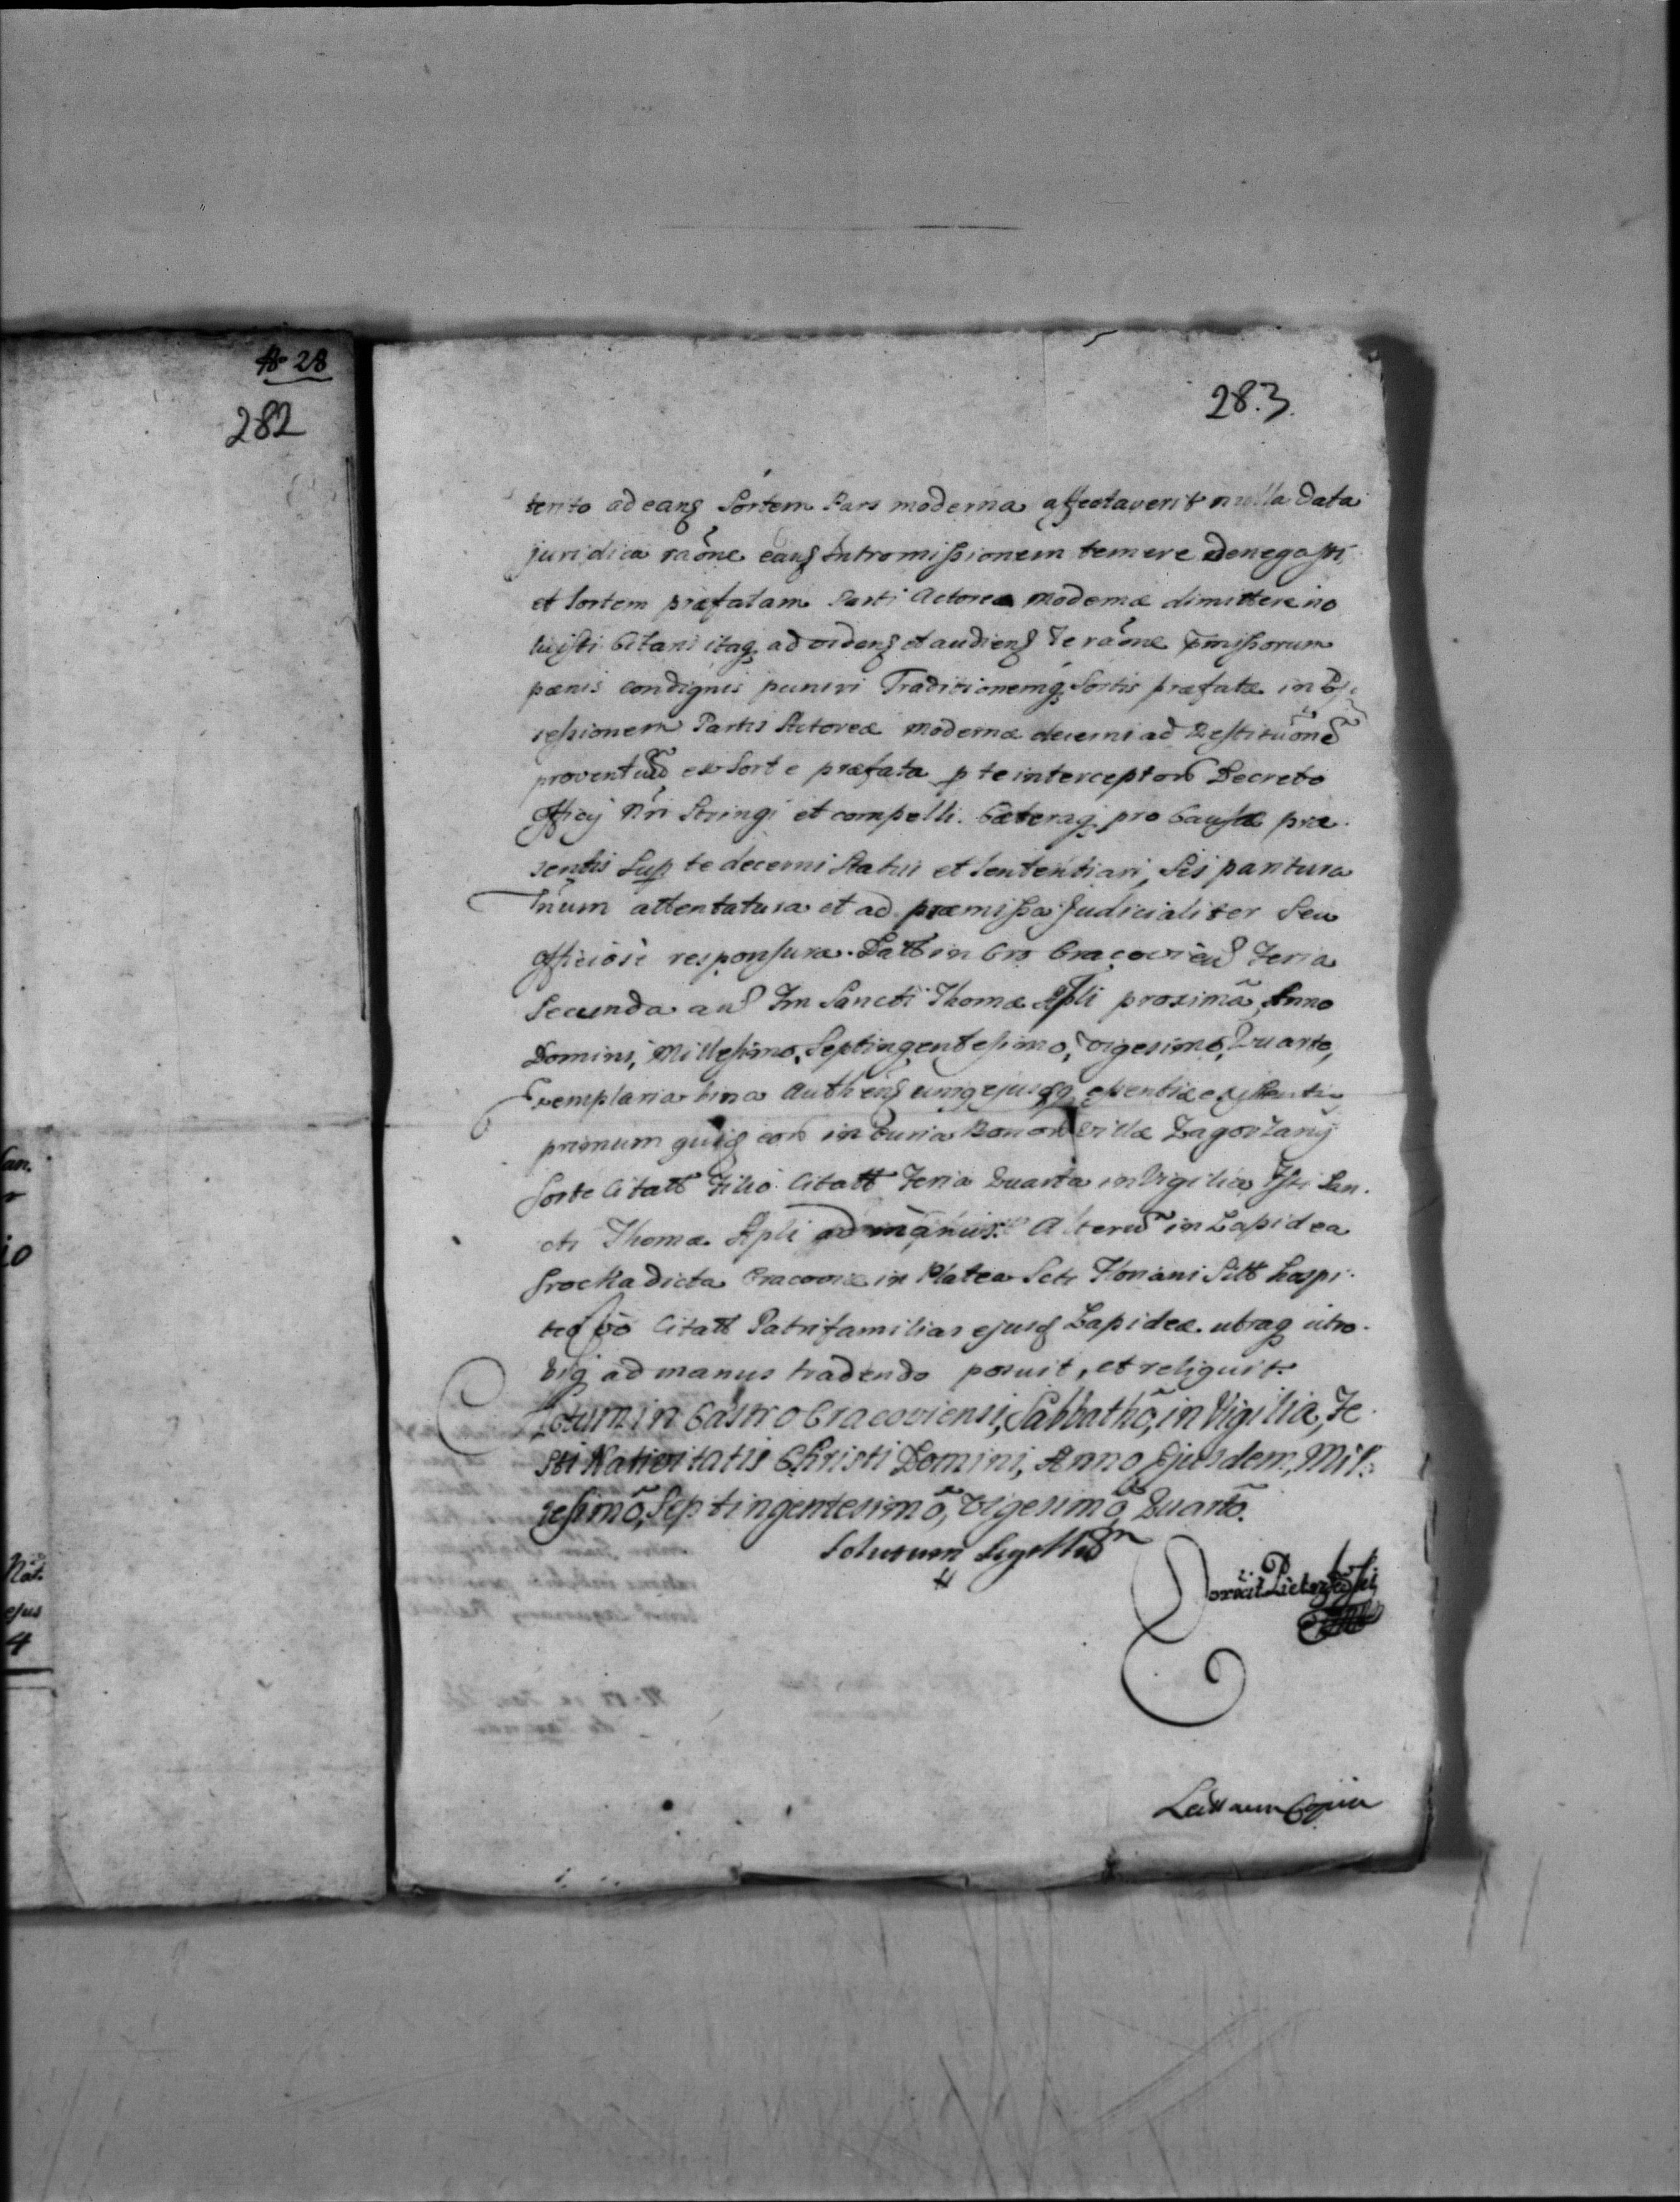 A 28
282
28.3.
tento ad eanq Sortem Pars moderna affectaverit nulla data
juridica raône eanq Intromißionem temere denegasti,
et Sortem præfatam Parti Actoreæ modernæ dimittere no
luisti Citaris itaq ad videnq et audienq Te raône præmißorum
pænis condignis puniri Traditionemq Sortis præfatæ in Pos
seßionem Partis Actoreæ modernæ decerni ad Restituõne
proventuũ ex Sorte præfata p te interceptorũ Decreto
Officij Nri Stringi et compelli. Cæteraq pro Causæ præ-
sentis Sup te decerni Statui et Sententiari, Sis paritura
Tñum attentatura et ad præmißa Judicialiter Seu
Officiosè responsura. Datt in Cro Cracovien Feria
Secunda an Fm Sancti Thomæ Apli proximã, Anno
Domini, Milleßimo, Septingentesimo, Vigesimo, Quarto,
Exemplaria bina Authenq unigejusdq eßentiæ existentia
primum quidq eorũ in Curia Bonorũ Villæ Zagorzany
Sorte Citatt Filio Citatt Feria Quarta in Vigilia Fsti San-
cti Thomæ Apli ad manus. Alterũ in Lapidea
Grocka dicta Cracoviæ in Platea Scti Floriani Sitt hospi-
tio vò Citatt Patrifamilias ejusd Lapideæ utraq utro-
biq ad manus tradendo posuit, et reliquit.
Actum in Castro Cracoviensi, Sabbathõ, in Vigilia, Fe-
sti Nativitatis Christi Domini, Anno Ejusdem, Mil-
leßimõ, Septingentesimõ, Vigesimõ, Quartõ.
Solutum Sigillũ
4
Correxit
Lectum Copia
an.
io
Nat.
ejus
4